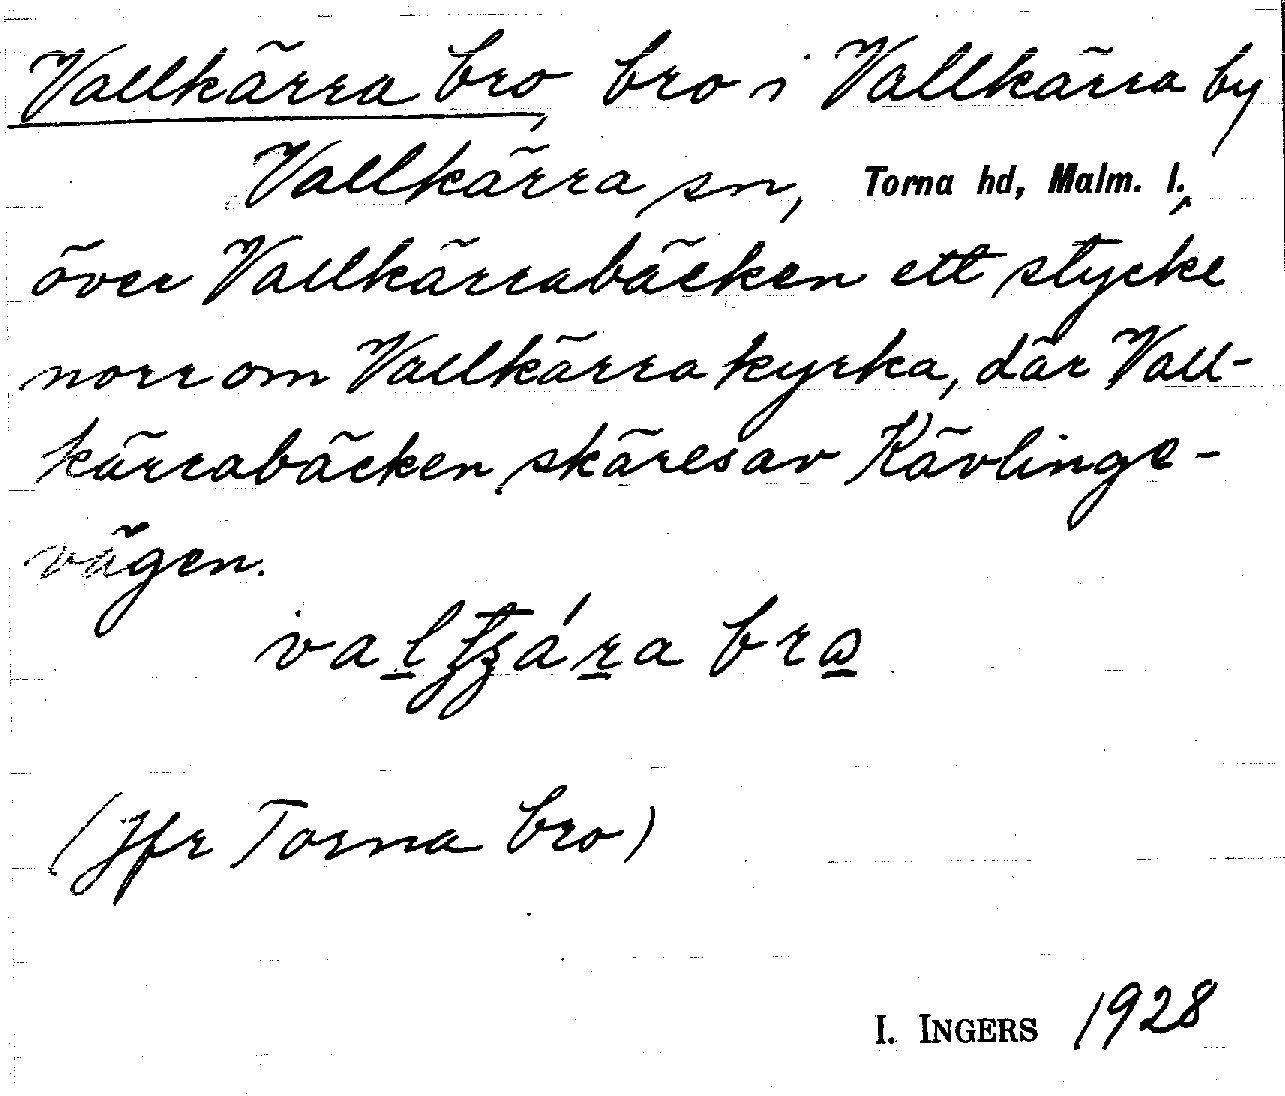 Vallkärra bro, bro i Vallkärra by
Vallkärra sn, Torna hd, Malm. l.,
över Vallkärrabäcken ett stycke
norr om Vallkärra kyrka, där Vall-
kärrabäcken skäres av Kävlinge-
vägen.
bro
(Jfr Torna bro)
I. INGERS 1928